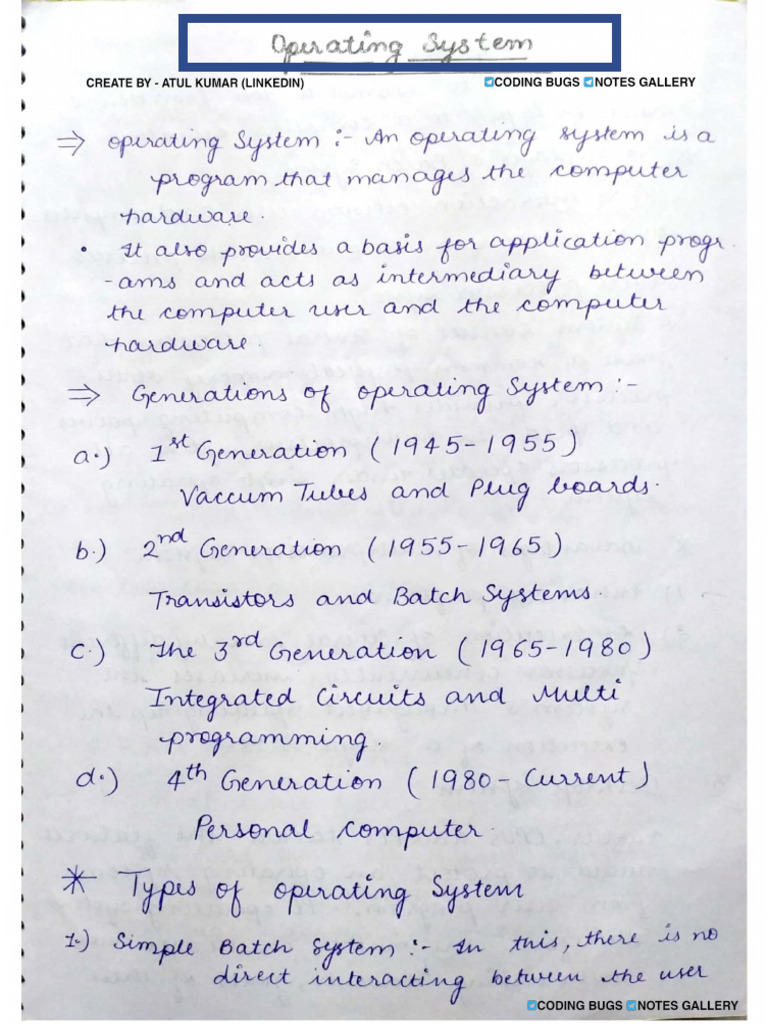 Operating System
CREATE BY - ATUL KUMAR (LINKEDIN) CODING BUGS NOTES GALLERY
⇒ Operating System :- An operating system is a
program that manages the computer
hardware.
• It also provides a basis for application progr
-ams and acts as intermediary between
the computer user and the computer
hardware.
⇒ Generations of operating System :-
a.) 1st Generation (1945-1955)
Vaccum Tubes and Plug boards.
b.) 2nd Generation (1955-1965)
Transistors and Batch Systems.
c.) The 3rd Generation (1965-1980)
Integrated Circuits and Multi
programming.
d.) 4th Generation (1980 - Current)
Personal Computer.
* Types of operating System
1.) Simple Batch System :- In this, there is no
direct interacting between the user
CODING BUGS NOTES GALLERY